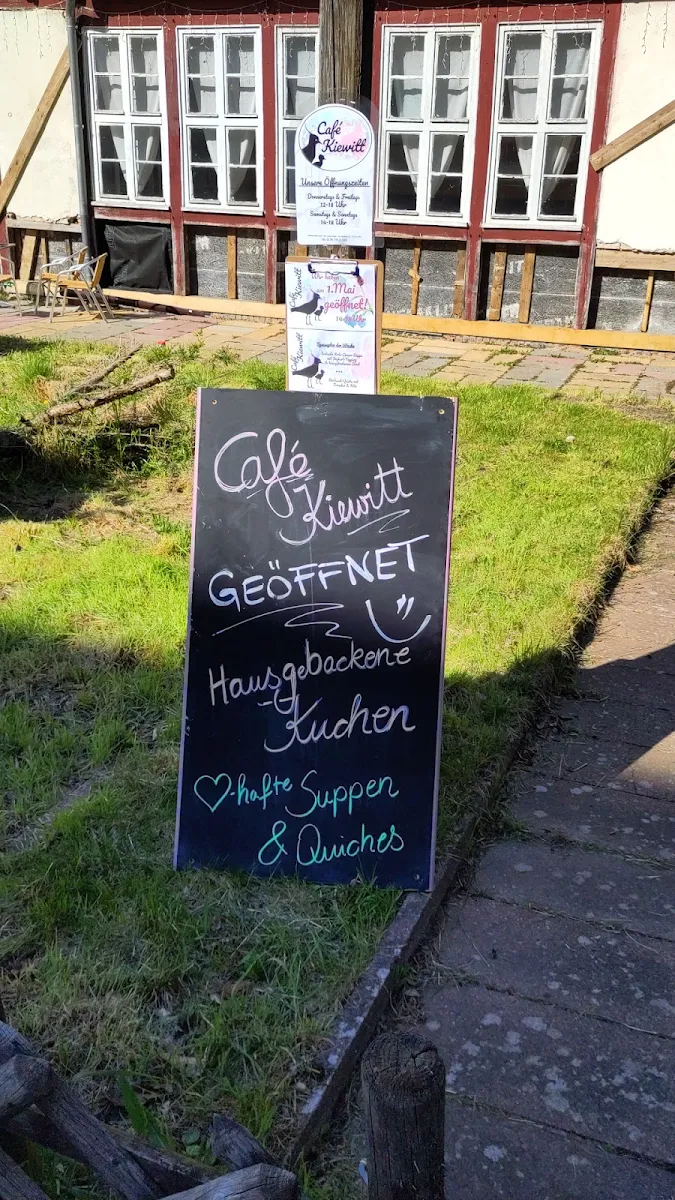 Café
Kiewitt
Unsere Öffnungszeiten
Donnerstags & Freitags
12-18 Uhr
Samstags & Sonntags
14-18 Uhr
Café Kiewitt
Wir haben
am 1.Mai
geöffnet!
Café Kiewitt
Café
Kiewitt
GEÖFFNET
Hausgebackene
Kuchen
-hafte Suppen
& Quiches